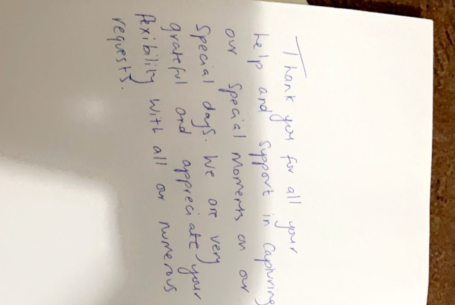 Thank you for all your
help and support in capturing
our special moments on our
special days. We are very
grateful and appreciate your
flexibility with all our numerous
requests.